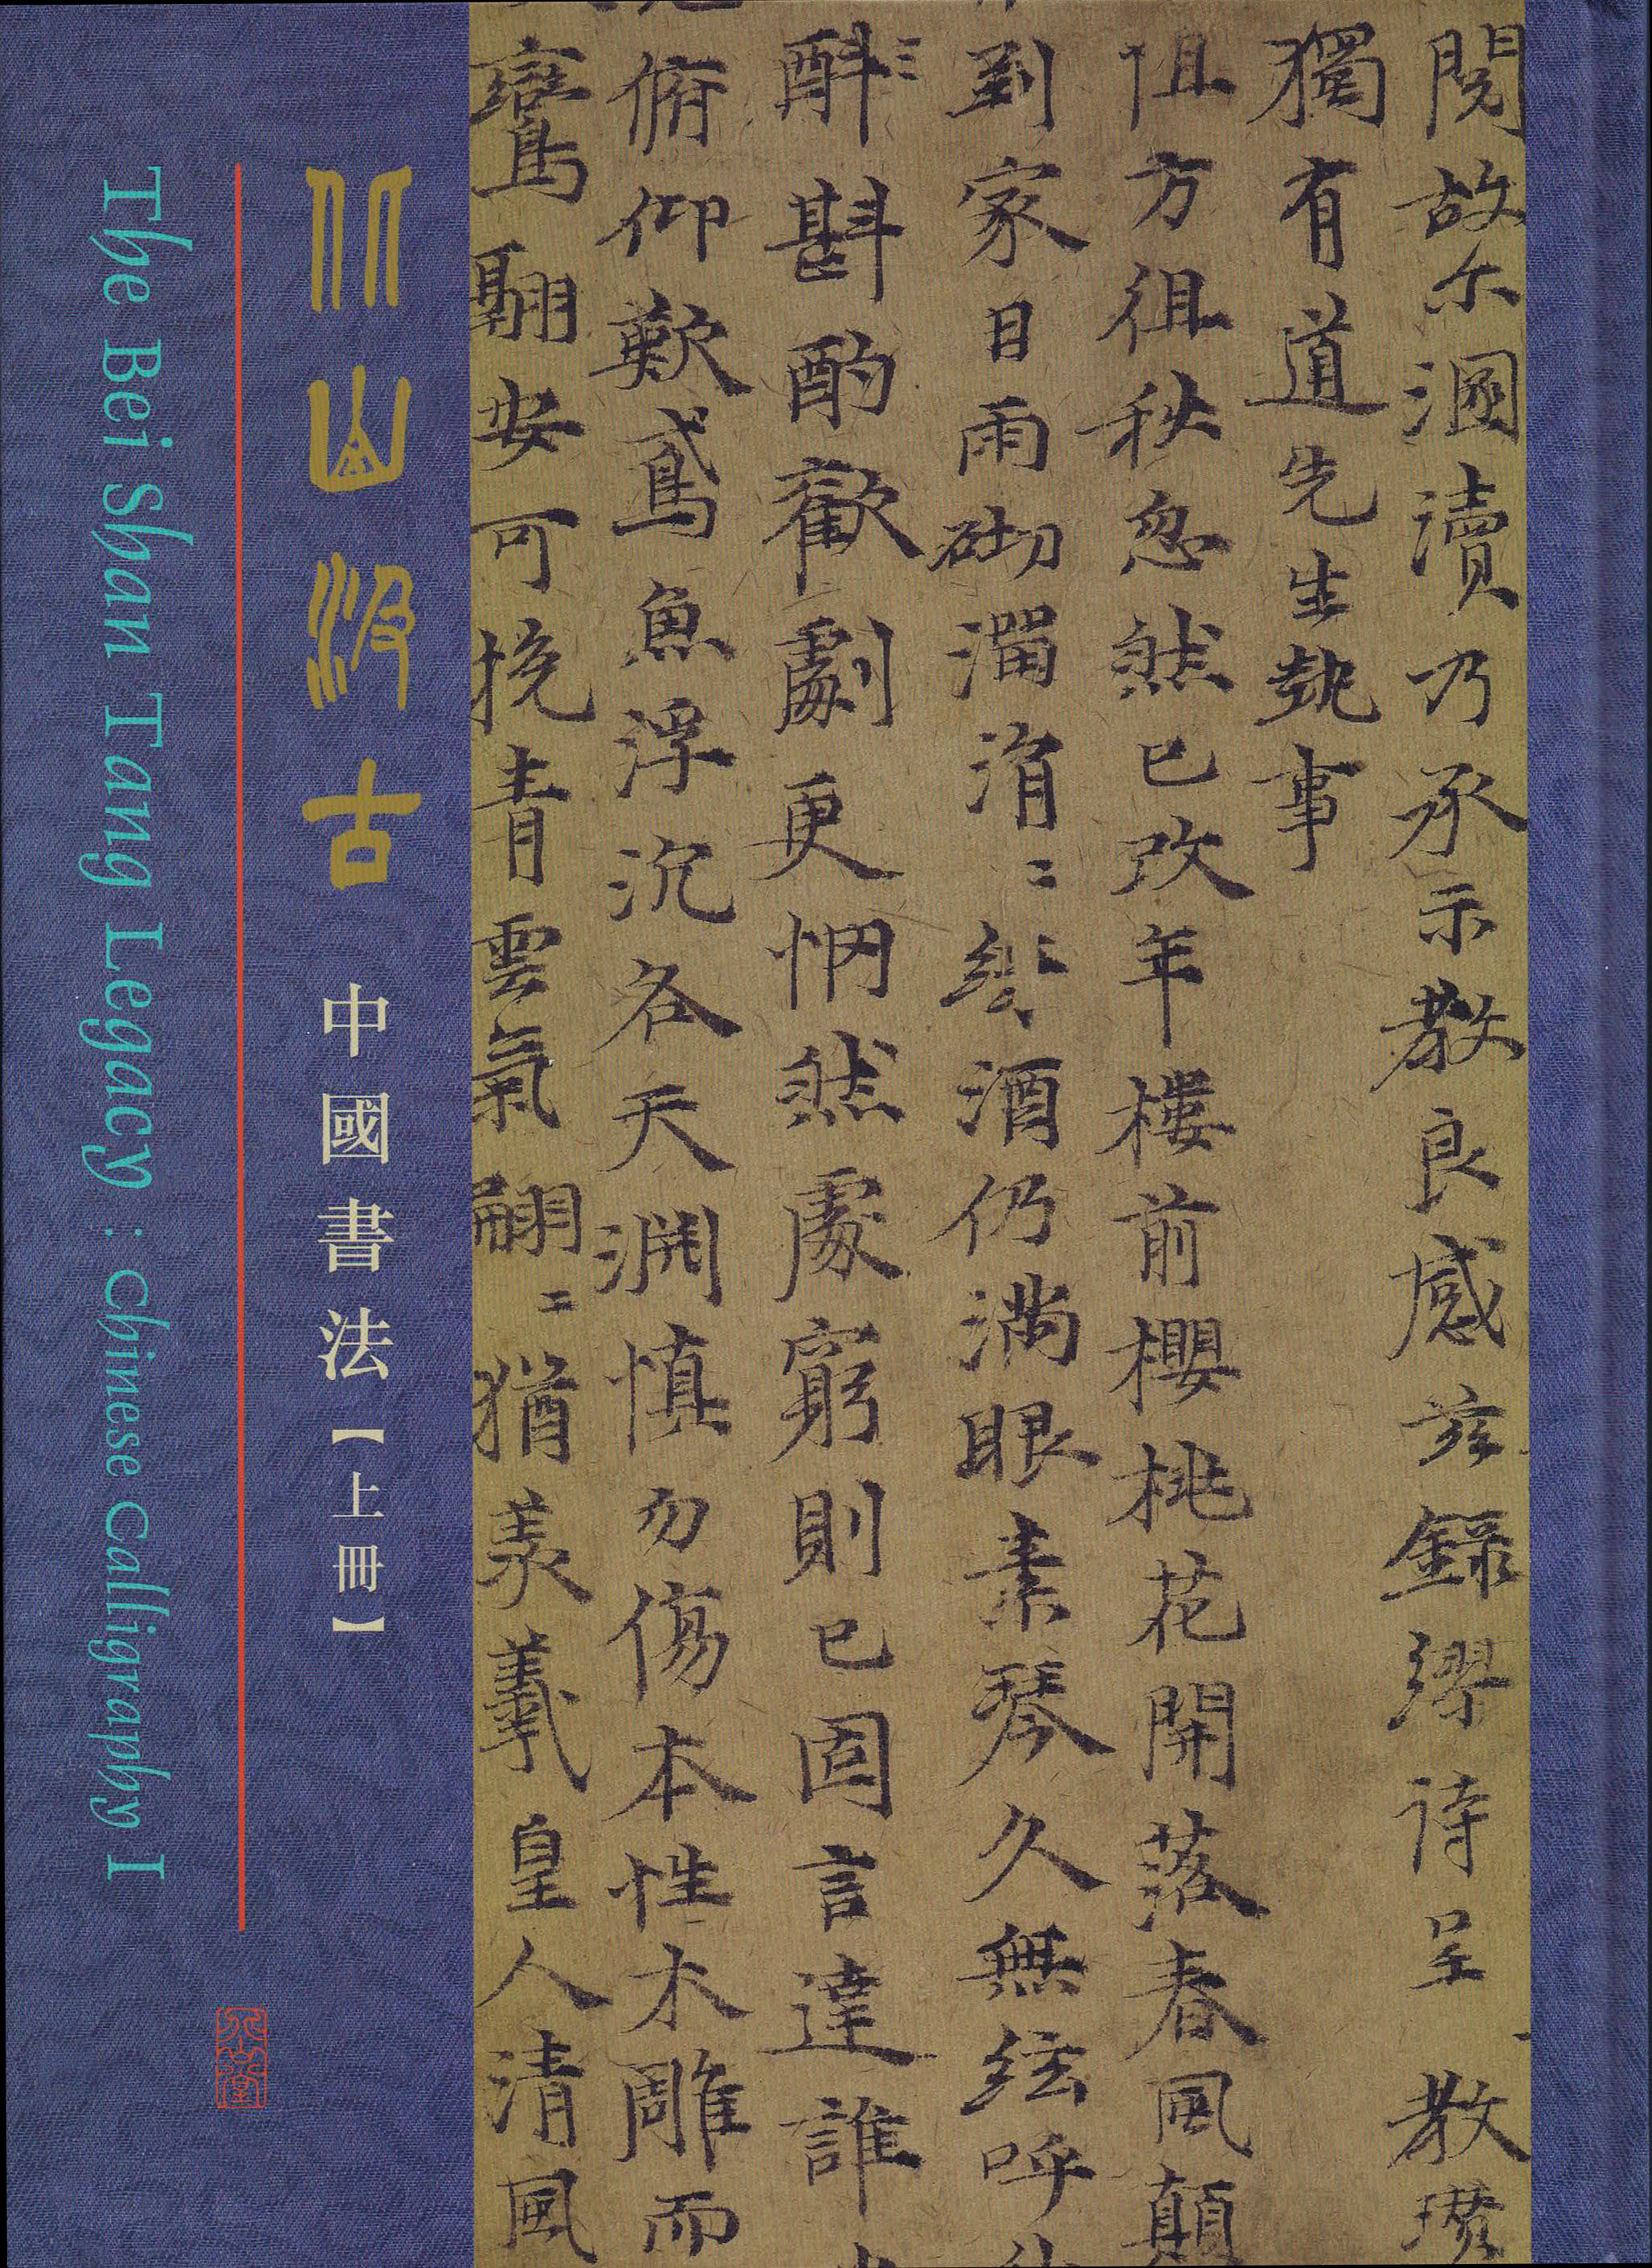 閱故尓溷瀆乃承示教良感玆錄繆詩呈 教
獨有道先生執事
徂方徂秋忽然已改年樓前櫻桃花開落春風顛
到家日雨砌溜涓〻绿〻酒仍満眼素琴久無絃呼
酙〻斟酌歡劇更惘然處窮則已固言達誰
俯仰歎鳶魚浮沉各天渊慎勿傷本性木雕而
鸞翮安可挽青雲氣翩〻猶羨羲皇人清風
北山汲古
中國書法【上冊】
The Bei Shan Tang Legacy : Chinese Calligraphy I